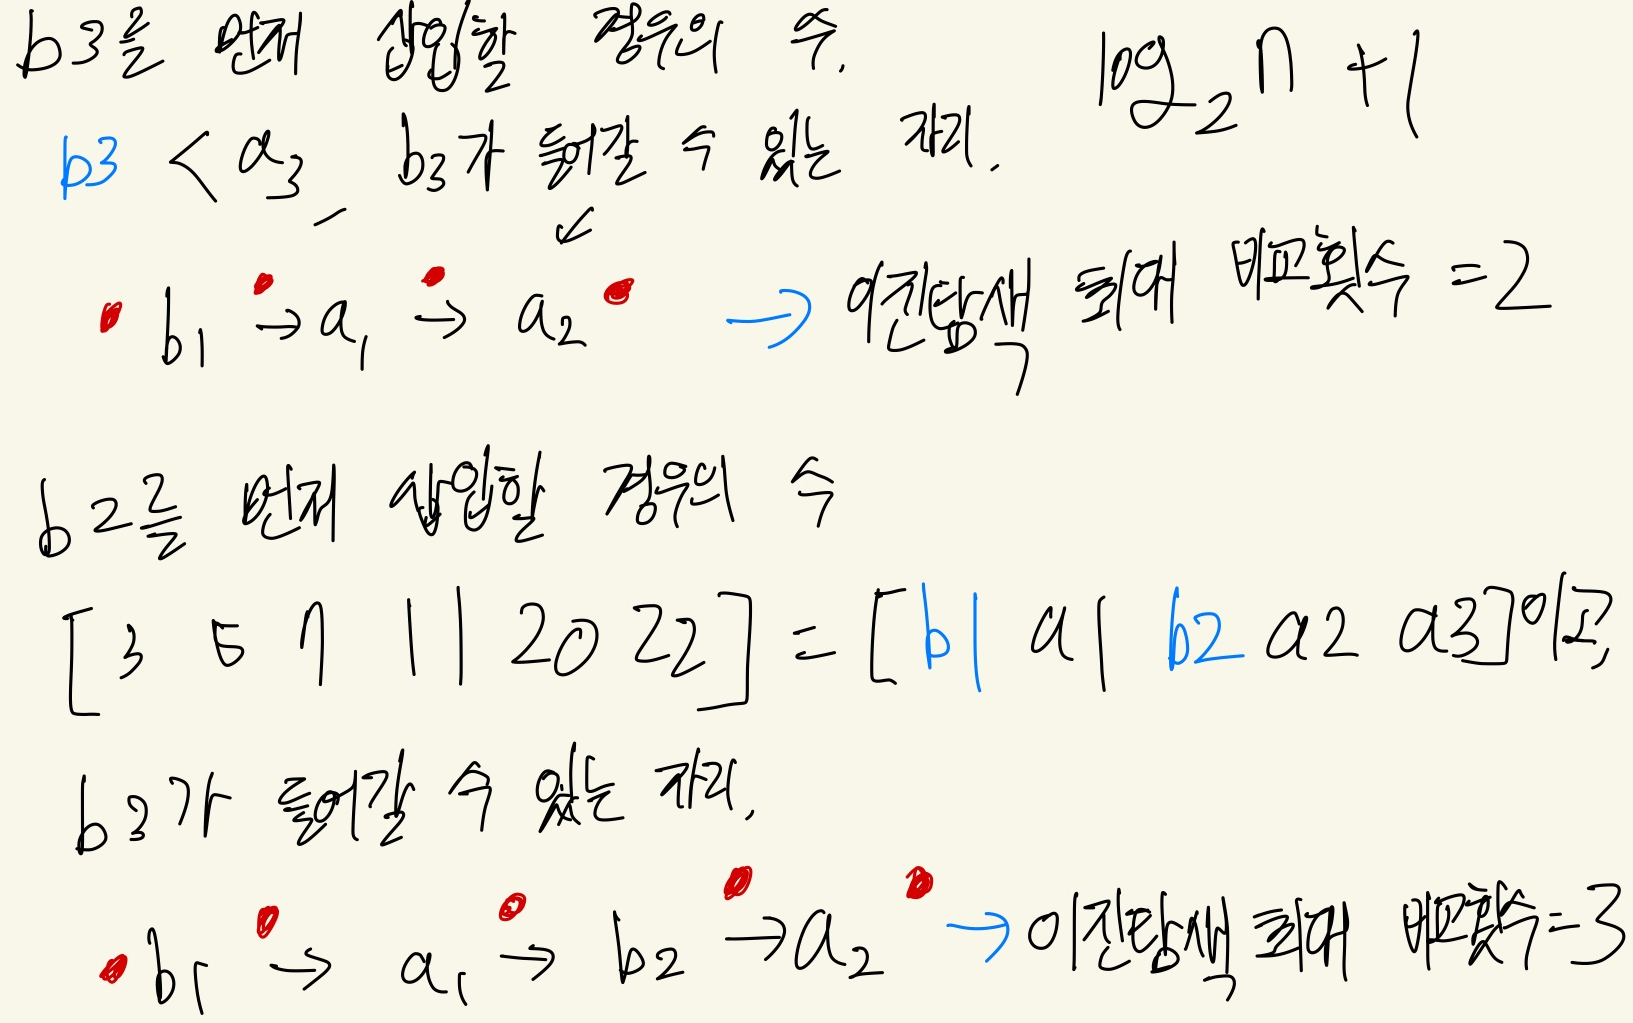 b3를 먼저 삽입할 경우의 수.
log₂n + 1
b3 < a₃ b₃가 들어갈 수 있는 자리.
b₁ → a₁ → a₂ → 이진탐색 최대 비교횟수 = 2
b2를 먼저 삽입할 경우의 수
[3 5 7 11 20 22] = [b1 a1 b2 a2 a3]이고,
b3가 들어갈 수 있는 자리.
b₁ → a₁ → b₂ → a₂ → 이진탐색 최대 비교횟수=3